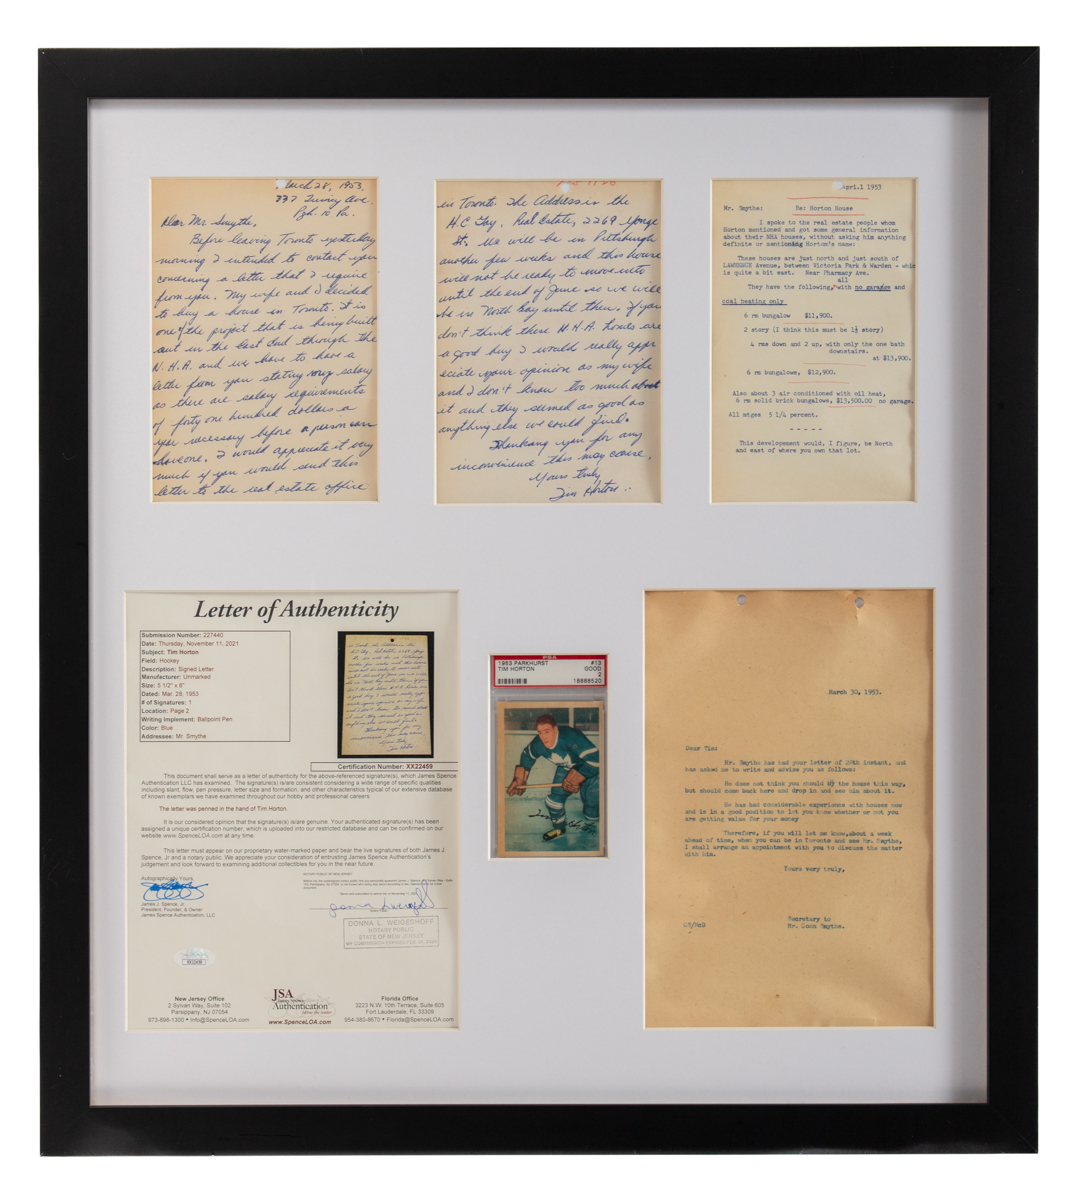 March 28, 1953.
737 Ave.
Pgh. 16 Pa.
Dear Mr. Smythe,
Before leaving Toronto yesterday
morning I intended to contact you
concerning a letter that I require
from you. My wife and I decided
to buy a house in Toronto. It is
one of the project that is being built
out in the East End through the
N.H.A. and we have to have a
letter from you stating my salary
as there are salary requirements
of forty one hundred dollars a
year necessary before a person can
have one. I would appreciate it very
much if you would send this
letter to the real estate office
in Toronto. The Address is the
H.C. Fay, Real Estate, 2269 Yonge
St. We will be in Pittsburgh
another few weeks and this house
will not be ready to move into
until the end of June so we will
be in North Bay until then. If you
don't think these N.H.A. houses are
a good buy I would really appr
eciate your opinion as my wife
and I don't know too much about
it and they seemed as good as
anything else we could find.
Thanking you for any
inconvinence this may cause,
Yours truly
Tim Horton.
April.1 1953
Mr. Smythe: Re: Horton House
I spoke to the real estate people whom
Horton mentioned and got some general information
about their NHA houses, without asking him anything
definite or mentioning Horton's name:
These houses are just north and just south of
LAWRENCE Avenue, between Victoria Park & Warden - whic
is quite a bit east. Near Pharmacy Ave.
all
They have the following, with no garages and
coal heating only
6 rm bungalow $11,900.
2 story (I think this must be 1½ story)
4 rms down and 2 up, with only the one bath
downstairs.
at $13,900.
6 rm bungalows, $12,900.
Also about 3 air conditioned with oil heat,
6 rm solid brick bungalows, $13,500.00 no garage.
All mtges 5 1/4 percent.
- - - - -
This developement would, I figure, be North
and east of where you own that lot.
Letter of Authenticity
Submission Number: 227440
Date: Thursday, November 11, 2021
Subject: Tim Horton
Field: Hockey
Description: Signed Letter
Manufacturer: Unmarked
Size: 5 1/2" x 8"
Dated: Mar. 28, 1953
# of Signatures: 1
Location: Page 2
Writing Implement: Ballpoint Pen
Color: Blue
Addressee: Mr. Smythe
Certification Number: XX22459
This document shall serve as a letter of authenticity for the above-referenced signature(s), which James Spence
Authentication LLC has examined. The signature(s) is/are consistent considering a wide range of specific qualities
including slant, flow, pen pressure, letter size and formation, and other characteristics typical of our extensive database
of known exemplars we have examined throughout our hobby and professional careers.
The letter was penned in the hand of Tim Horton.
It is our considered opinion that the signature(s) is/are genuine. Your authenticated signature(s) has been
assigned a unique certification number, which is uploaded into our restricted database and can be confirmed on our
website www.SpenceLOA.com at any time.
This letter must appear on our proprietary water-marked paper and bear the live signatures of both James J.
Spence, Jr and a notary public. We appreciate your consideration of entrusting James Spence Authentication's
judgement and look forward to examining additional collectibles for you in the near future.
Autographically Yours,
James J. Spence, Jr.
President, Founder, & Owner
James Spence Authentication, LLC
DONNA L. WEIGESHOFF
NOTARY PUBLIC
STATE OF NEW JERSEY
New Jersey Office
2 Sylvan Way, Suite 102
Parsippany, NJ 07054
973-898-1300 • Info@SpenceLOA.com
JSA
James Spence
Authentication
www.SpenceLOA.com
Florida Office
3223 N.W. 10th Terrace, Suite 605
Fort Lauderdale, FL 33309
954-380-8670 • Florida@SpenceLOA.com
PSA
1953 PARKHURST #13
TIM HORTON GOOD
2
18888520
March 30, 1953.
Dear Tim:
Mr. Smythe has had your letter of 28th instant, and
has asked me to write and advise you as follows:
He does not think you should by the house this way,
but should come back here and drop in and see him about it.
He has had considerable experience with houses now
and is in a good position to let you know whether or not you
are getting value for your money
Therefore, if you will let me know, about a week
ahead of time, when you can be in Toronto and see Mr. Smythe,
I shall arrange an appointment with you to discuss the matter
with him.
Yours very truly,
Secretary to
Mr. Conn Smythe.